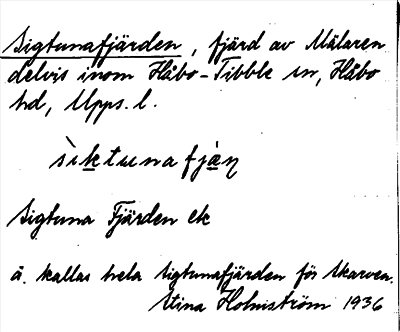 Sigtunafjärden, fjärd av Mälaren
delvis inom Håbo-Tibble sn, Håbo
hd, Upps. l.
sìktunafjàṇ
Sigtuna Fjärden ek
å. kallas hela Sigtunafjärden för Skarven.
Stina Holmström 1936